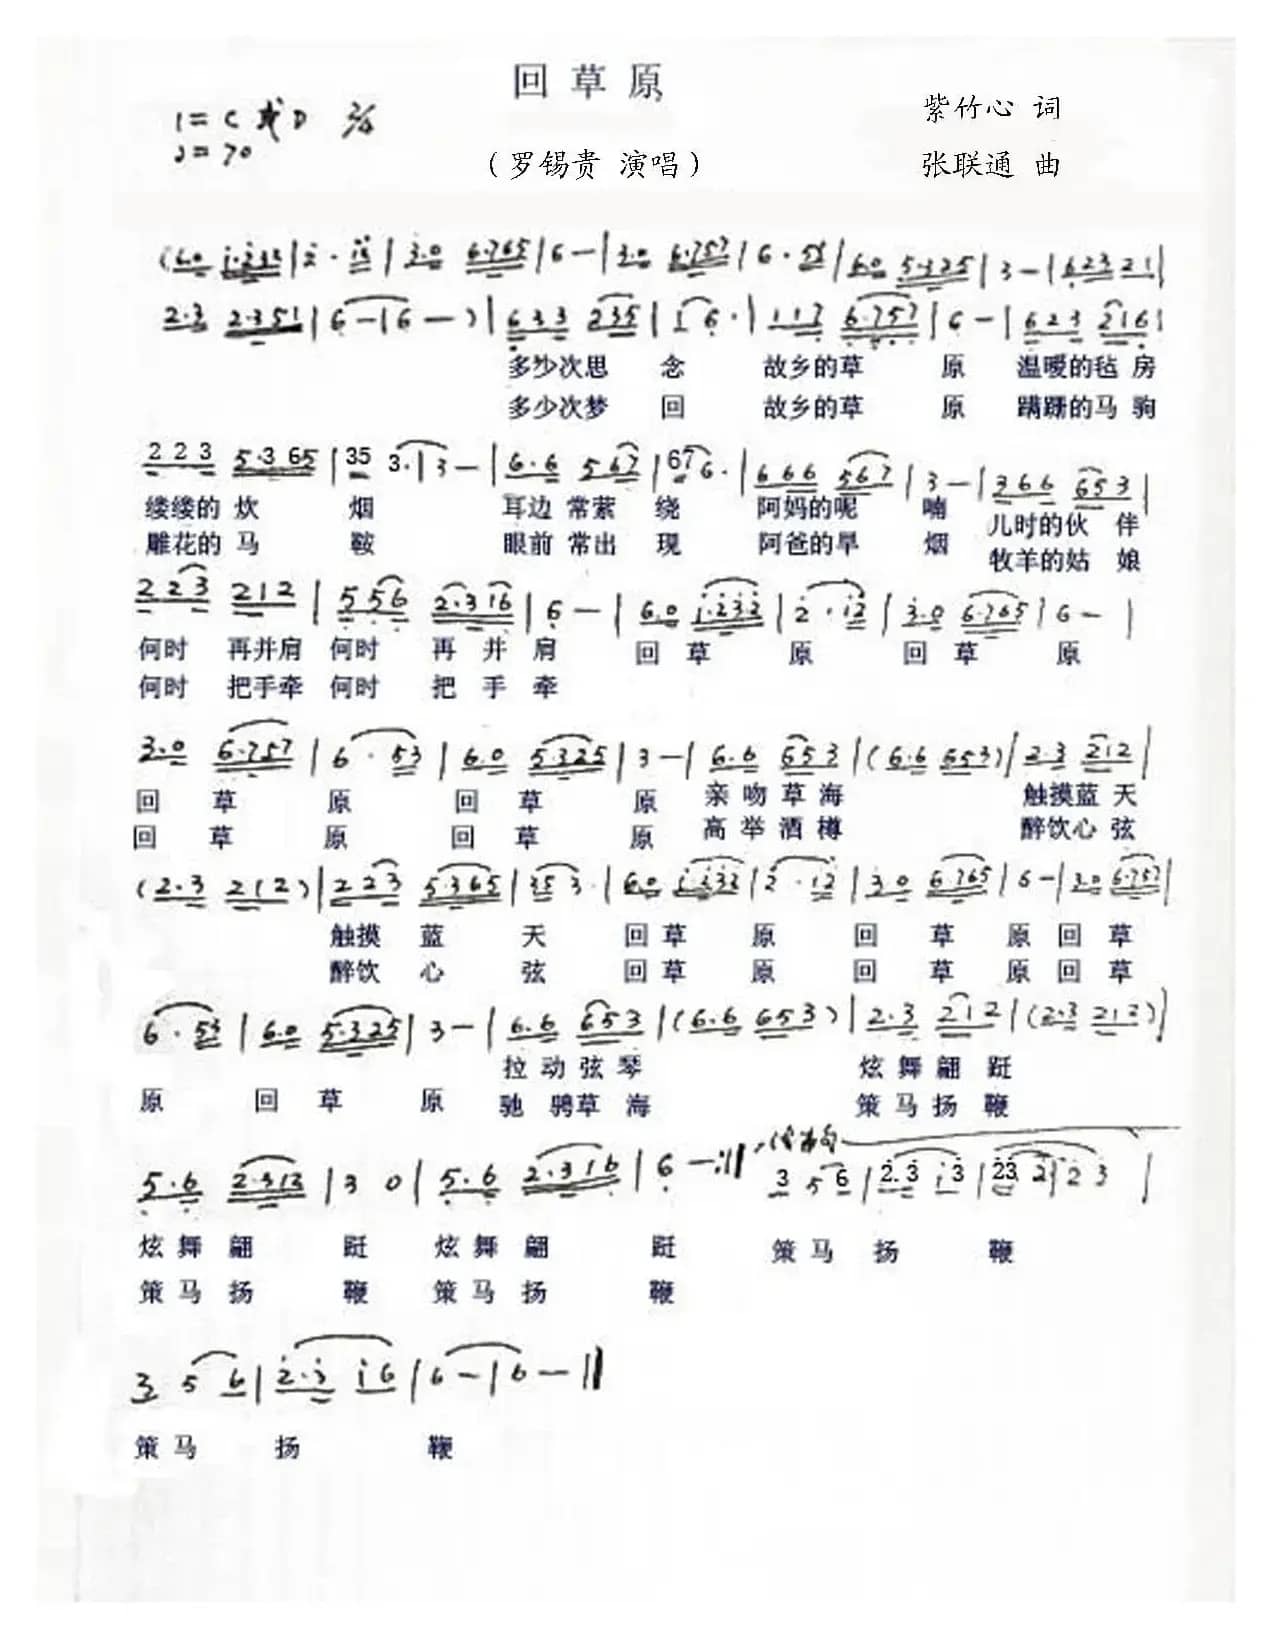 回草原
1=C或D 2/4
♩=70
紫竹心 词
（罗锡贵 演唱）
张联通 曲
(6·0 i·232|2·
2·3 2·351|6-|6-)|633 235|1 6·|117 6·757|6-|623 216|
多少次思 念 故乡的草 原 温暖的毡房
多少次梦 回 故乡的草 原 蹒跚的马驹
223 5·365|35 3·|3-|6·6 567|67 6·|666 567|3-|366 653|
缕缕的炊 烟 耳边常萦 绕 阿妈的呢 喃 儿时的伙 伴
雕花的马 鞍 眼前常出 现 阿爸的旱 烟 牧羊的姑 娘
223 212|556 2·316|6-|6·0 i·232|2·12|3·0 6·765|6-|
何时 再并肩 何时 再并肩 回草 原 回草 原
何时 把手牵 何时 把手牵
3·0 6·757|6·53|6·0 5·325|3-|6·6 653|(6·6 653)|2·3 212|
回 草 原 回 草 原 亲吻草海 触摸蓝天
回 草 原 回 草 原 高举酒樽 醉饮心弦
(2·3 212)|223 5·365|35 3·|6·0 i·232|2·12|3·0 6·765|6-|3·0 6·757|
触摸 蓝 天 回草 原 回 草 原 回 草
醉饮 心 弦 回草 原 回 草 原 回 草
6·53|6·0 5·325|3-|6·6 653|(6·6 653)|2·3 212|(2·3 212)|
拉动弦琴 炫舞翩跹
原 回 草 原 驰骋草海 策马扬鞭
5·6 2·312|3 0|5·6 2·316|6-:|| 3 5 6|2·3 i3|23 2|2 3|
炫舞翩 跹 炫舞翩 跹 策马 扬 鞭
策马扬 鞭 策马扬 鞭
3 5 6|2·3 i6|6-|6-||
策马 扬 鞭